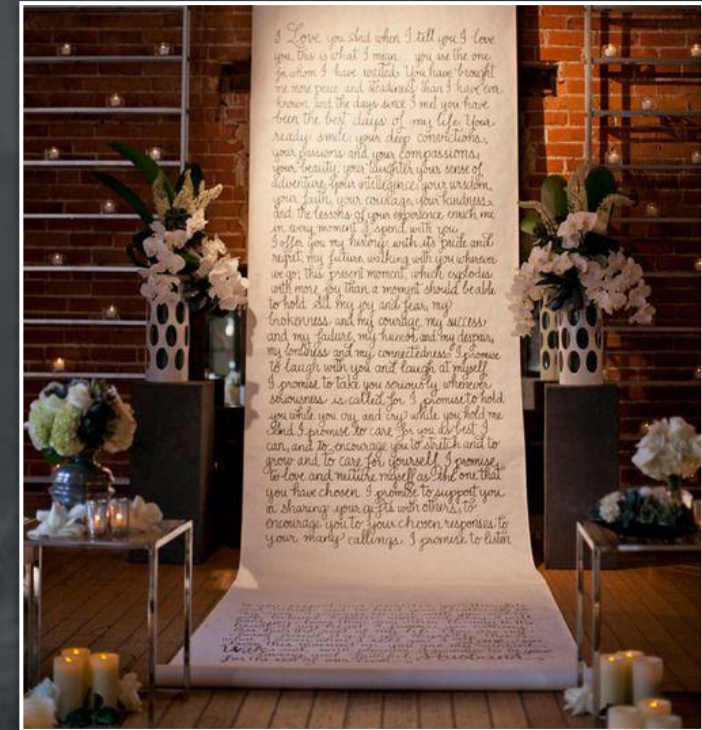 I Love you And when I tell you I love
you, this is what I mean you are the one
for whom I have waited You have brought
me more peace and steadiness than I have ever
known and the days since I met you have
been the best days of my life Your
ready smile, your deep convictions,
your passions and your compassions,
your beauty, your laughter your sense of
adventure your intelligence, your wisdom,
your faith, your courage, your kindness
and the lessons of your experience enrich me
in every moment I spend with you
I offer you my history, with its pride and
regret, my future, walking with you wherever
we go; this present moment, which explodes
with more joy than a moment should be able
to hold All my joy and fear, my
brokenness and my courage, my success
and my failure, my humor and my despair,
my loneliness and my connectedness. I promise
to laugh with you and laugh at myself
I promise to take you seriously whenever
seriousness is called for I promise to hold
you while you cry, and cry while you hold me
And I promise to care for you as best I
can, and to encourage you to stretch and to
grow and to care for yourself I promise
to love and nurture myself as the one that
you have chosen I promise to support you
in sharing your gifts with others, to
encourage you to your chosen responses to
your many callings. I promise to listen